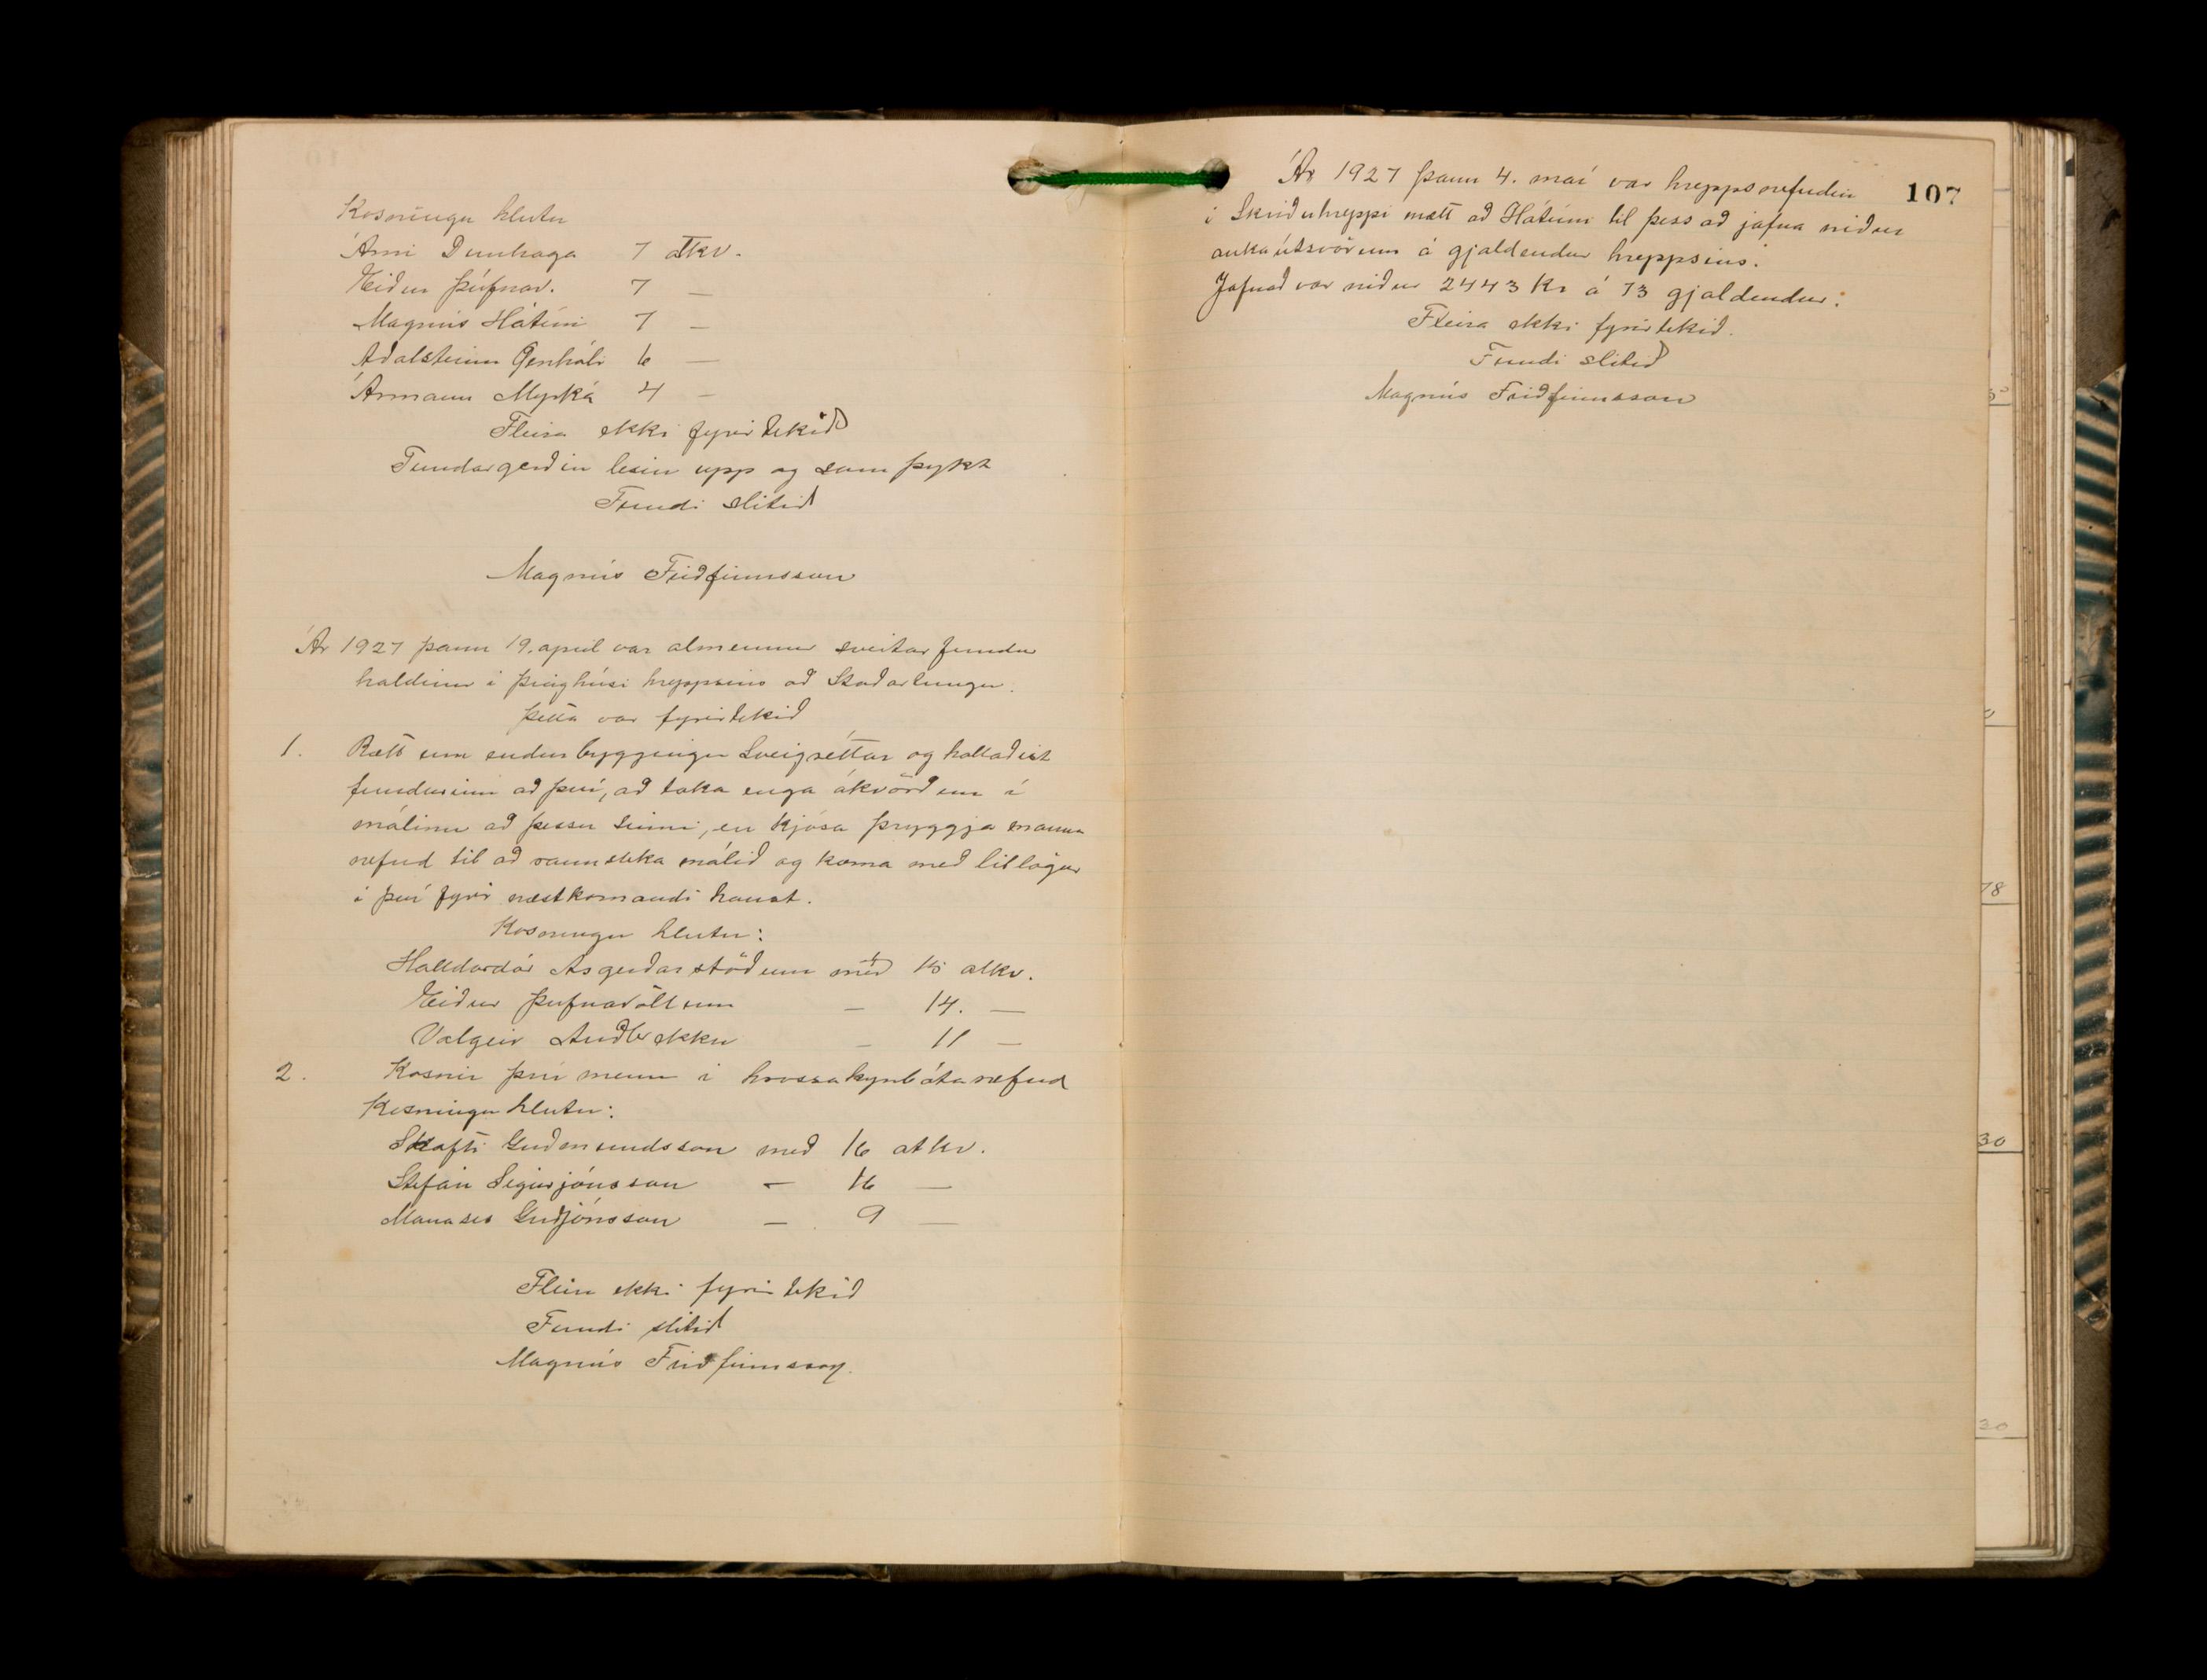 Kosningu hlutu
Árni Dunhaga 7 atkv.
Eiður Þúfnav. 7 —
Magnús Hátúni 7 —
Aðalsteinn Öxnhóli 6 —
Ármann Myrká 4 –
Fleira ekki fyrirtekið
Fundargerðin lesin upp og samþykt
Fundi slitið
Magnús Friðfinnsson
Ár 1927 þann 19. apríl var almennur sveitarfundur
haldinn í þinghúsi hreppsins að Staðartungu.
Þetta var fyrirtekið
1. Rætt um endurbyggingu Sveigréttar og hallaðist
fundurinn að því, að taka enga ákvörðun í
málinu að þessu sinni, en kjósa þryggja manna
nefnd til að rannsaka málið og koma með tillögur
í því fyrir næstkomandi haust.
Kosningu hlutu:
Halldór Ásgerðarstöðum með 15 atkv.
Eiður Þúfnavöllum — 14. —
Valgeir Auðbrekku – 11 —
2. Kosnir þrír menn í hrossakynbótanefnd
Kosningu hlutu:
Skafti Guðmundsson með 16 atkv.
Stefán Sigurjónsson – 16 —
Manases Guðjónsson — 9 —
Fleira ekki fyrirtekið
Fundi slitið
Magnús Friðfinnsson.
107
Ár 1927 þann 4. maí var hreppsnefndin
í Skriðuhreppi mætt að Hátúni til þess að jafna niður
aukaútsvörum á gjaldendur hreppsins.
Jafnað var niður 2443 Kr á 73 gjaldendur.
Fleira ekki fyrirtekið.
Fundi slitið
Magnús Friðfinnsson
78
30
30